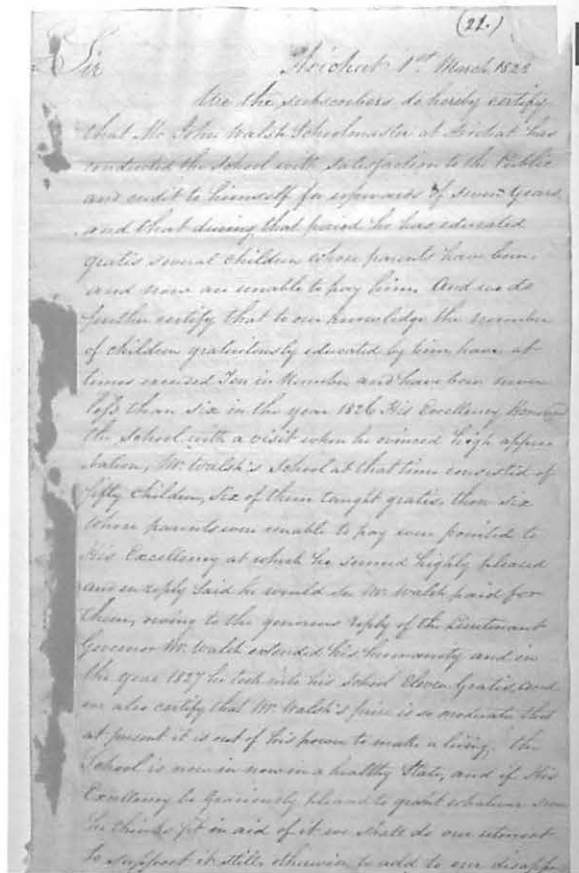 (21.)
Sir Arichat 1st March 1828
We the subscribers do hereby certify
that Mr John Walsh Schoolmaster at Arichat has
conducted the School with satisfaction to the Public
and credit to himself for upwards of seven Years
and that during that period he has educated
gratis several children whose parents have been,
and now are unable to pay him. And we do
further certify that to our knowledge the number
of children gratuitously educated by him have at
times exceeded Ten in Number and have been never
less than six in the year 1826 His Excellency Honoured
the School with a visit when he evinced high appro
bation, Mr Walsh's School at that time consisted of
fifty children, six of them taught gratis, those six
whose parents were unable to pay were pointed to
His Excellency at which he seemed highly pleased
and in reply Said he would see Mr Walsh paid for
them, owing to the generous reply of the Lieutenant
Governor Mr Walsh extended his humanity and in
the year 1827 he took into his School Eleven Gratis, and
we also certify that Mr Walsh's price is so moderate that
at present it is out of his power to make a living, the
School is now in now in a healthy State, and if His
Excellency be Graciously pleased to grant whatever sum
he thinks fit in aid of it we shall do our utmost
to support it still, otherwise to add to our disappo